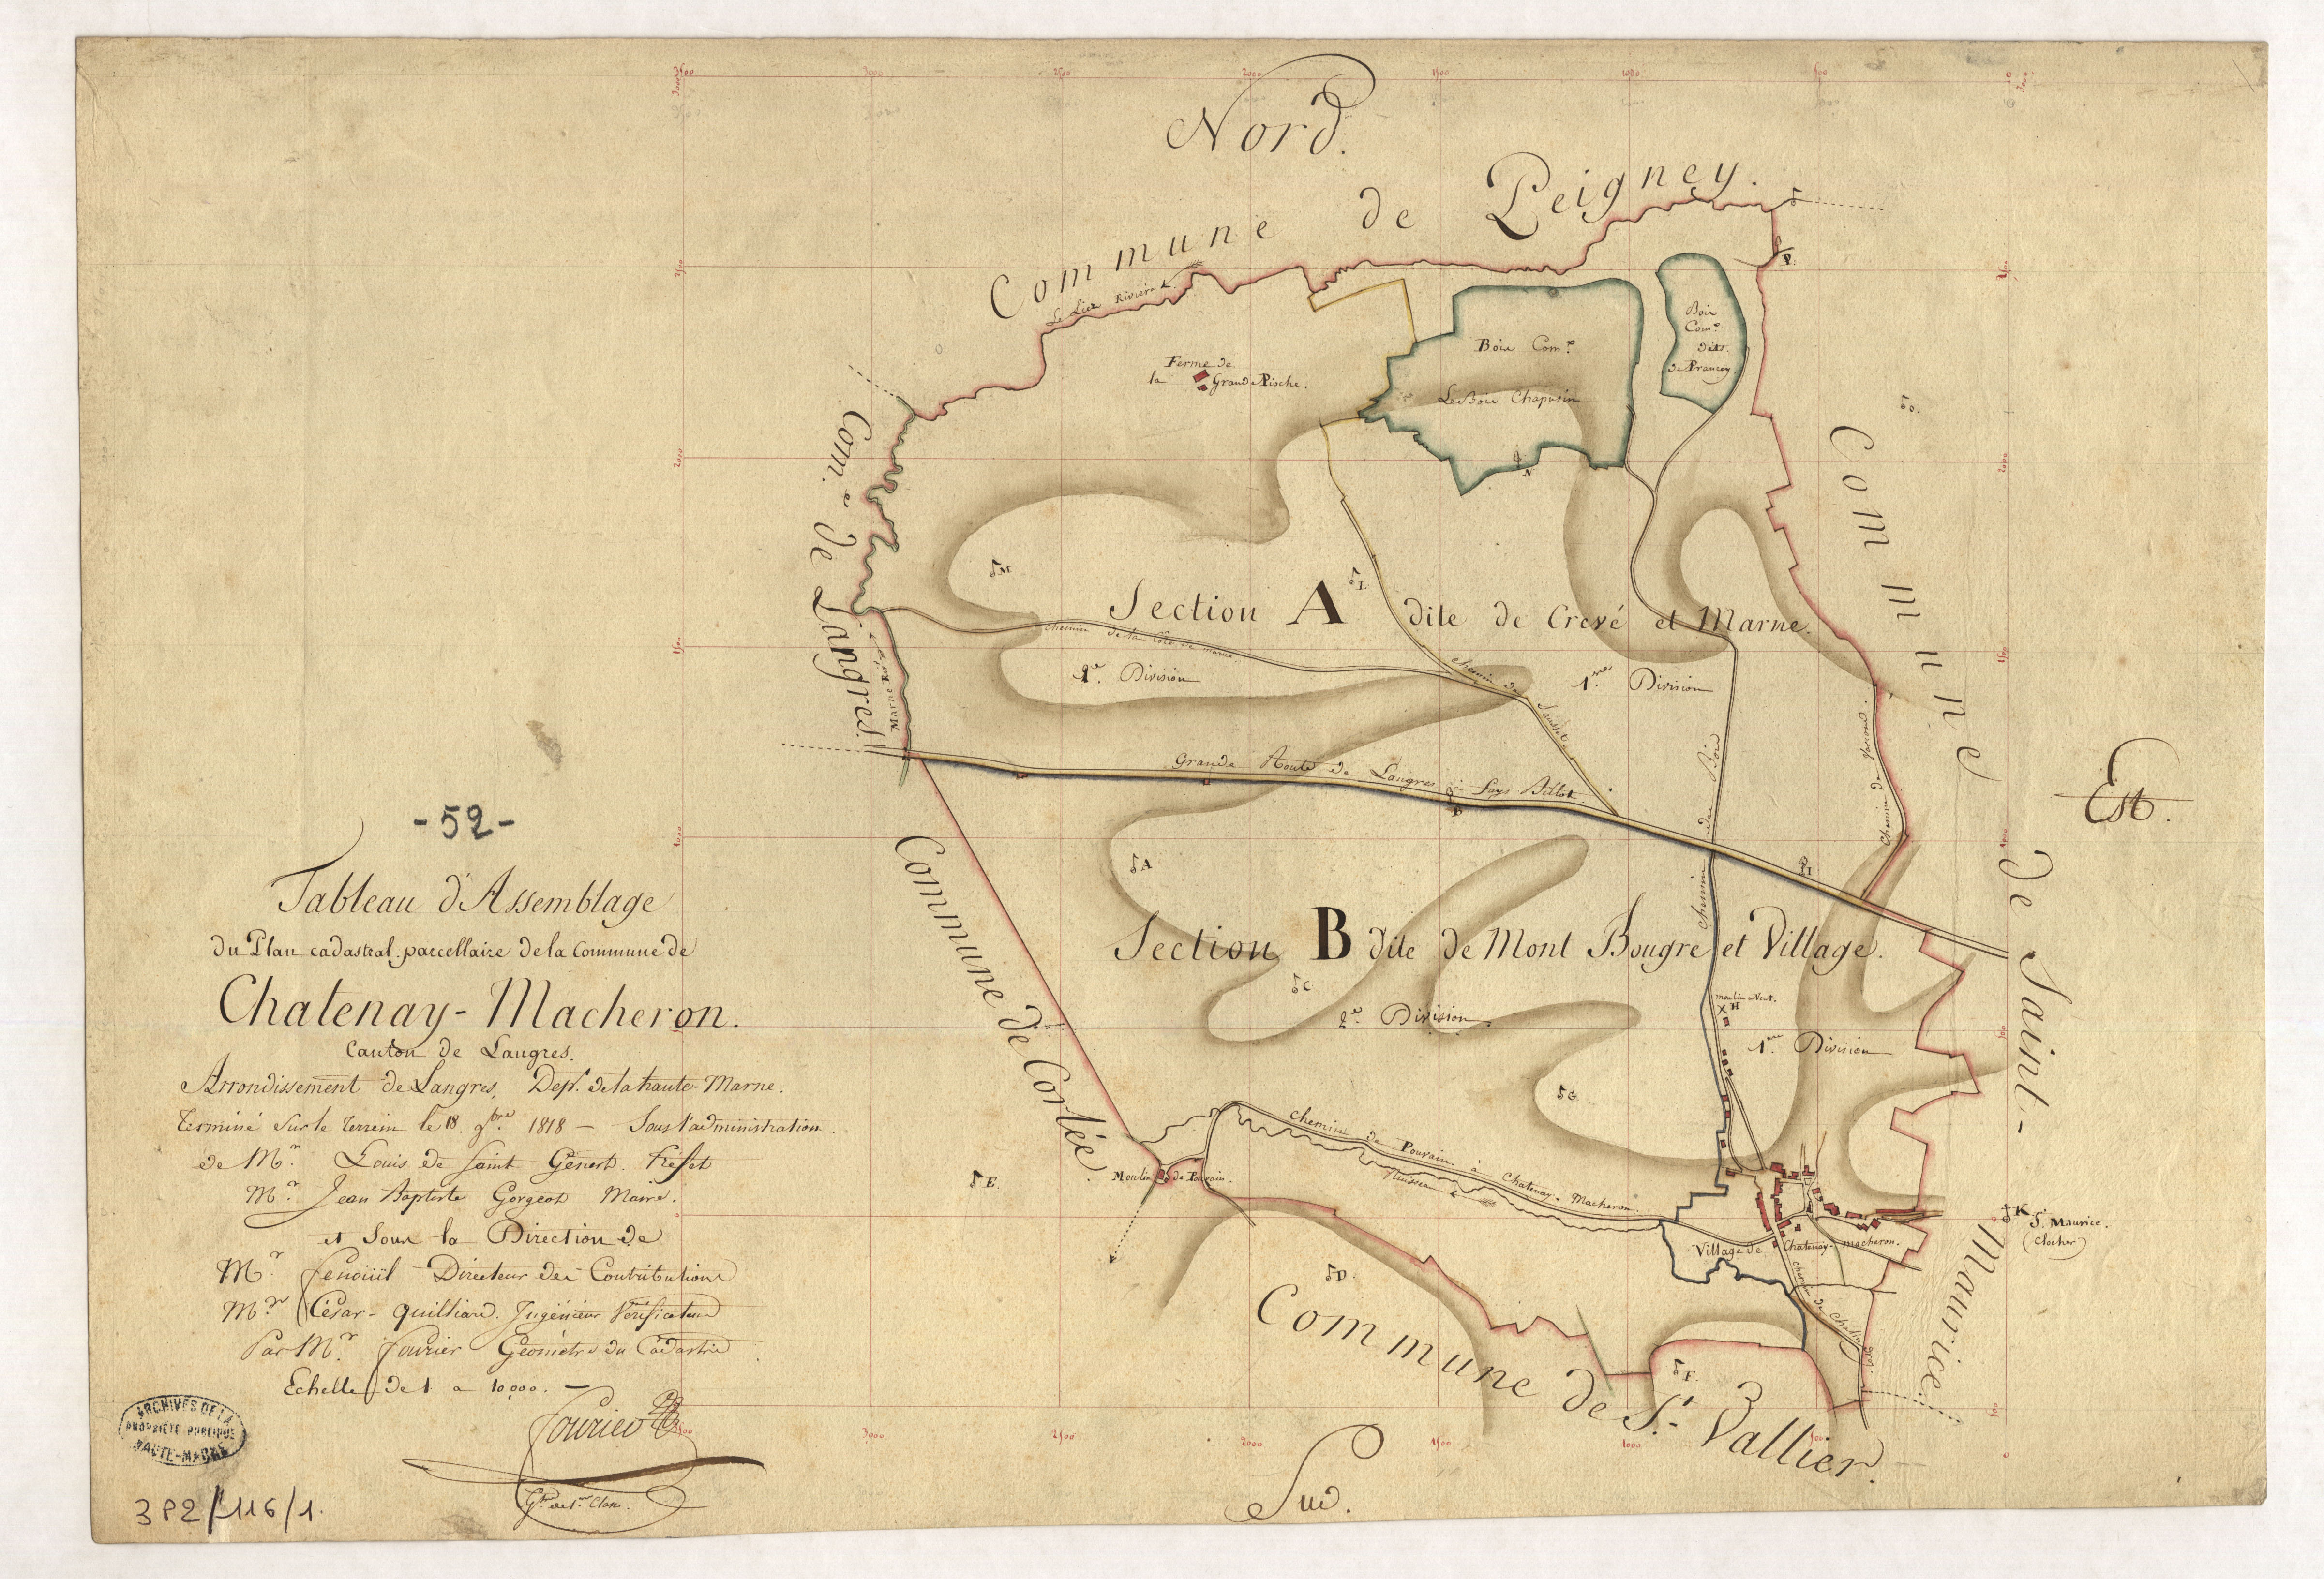 Nord.
Commune de Peigney.
Le Liez Rivière
Ferme de
la Grande Pioche.
Bois Com.al
Le Bois Chapusin
Bois
Com.al
dit
de Prancey
P.
O.
N
Com.e de Langres.
Marne Riv.re
M
L
Section A dite de Crevé et Marne.
chemin de la Côte de marne
2.e Division
1.ere Division
chemin de
Chemin de Bois
Grande Route de Langres à Fays-Billot.
B
I
A
Commune de Saint-Maurice.
Est.
- 52 -
Tableau d'Assemblage
du Plan cadastral parcellaire de la Commune de
Chatenay-Macheron.
Canton de Langres.
Arrondissement de Langres, Dep.t de la haute-Marne.
Terminé sur le terrein le 18 9.bre 1818 — Sous l'administration
de M.r Louis de Saint Genest. Préfet
M.r Jean Baptiste Gorgeot Maire.
et Sous la Direction de
M.r Directeur des Contributions
M.r César-Quilliard. Ingénieur Vérificateur
Par M.r Fourier Géomètre du Cadastre
Echelle de 1 a 10000. —
Fourier
G.tre de 1.re Class.
Commune de Corlée
Section B dite de Mont Bougre et Village.
C
2.e Division
moulin a Vent.
H
1.ere Division
G
chemin de Pouvain à Chatenay-Macheron
Ruisseau
Moulin de Pouvain.
E
D
F
Village de Chatenay-macheron.
K S.t Maurice.
(Clocher)
Commune de S.t Vallier.
Sud.
ARCHIVES DE LA
PROPRIETE PUBLIQUE
HAUTE-MARNE
3P2/116/1.